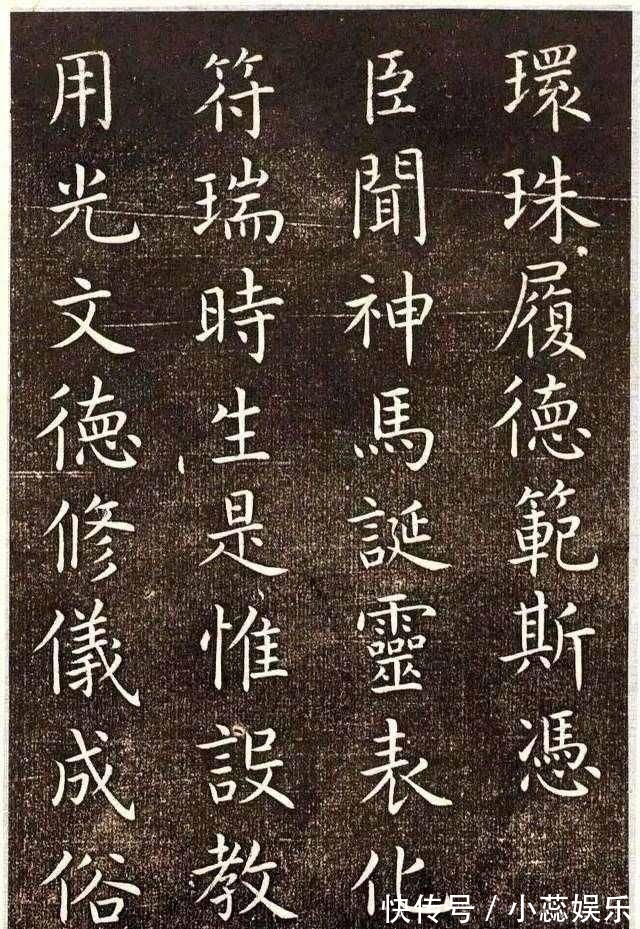 環珠履德範斯憑
臣聞神馬誕靈表化
符瑞時生是惟設教
用光文德修儀成俗
快传号／小蕊娱乐